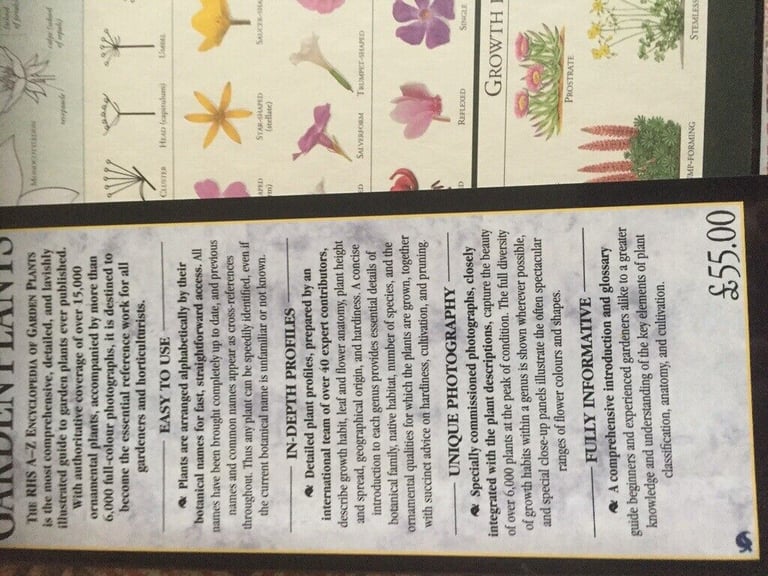 GARDEN PLANTS
THE RHS A–Z ENCYCLOPEDIA OF GARDEN PLANTS
is the most comprehensive, detailed, and lavishly
illustrated guide to garden plants ever published.
With authoritative coverage of over 15,000
ornamental plants, accompanied by more than
6,000 full-colour photographs, it is destined to
become the essential reference work for all
gardeners and horticulturists.
EASY TO USE
Plants are arranged alphabetically by their
botanical names for fast, straightforward access. All
names have been brought completely up to date, and previous
names and common names appear as cross-references
throughout. Thus any plant can be speedily identified, even if
the current botanical name is unfamiliar or not known.
IN-DEPTH PROFILES
Detailed plant profiles, prepared by an
international team of over 40 expert contributors,
describe growth habit, leaf and flower anatomy, plant height
and spread, geographical origin, and hardiness. A concise
introduction to each genus provides essential details of
botanical family, native habitat, number of species, and the
ornamental qualities for which the plants are grown, together
with succinct advice on hardiness, cultivation, and pruning.
UNIQUE PHOTOGRAPHY
Specially commissioned photographs, closely
integrated with the plant descriptions, capture the beauty
of over 6,000 plants at the peak of condition. The full diversity
of growth habits within a genus is shown wherever possible,
and special close-up panels illustrate the often spectacular
ranges of flower colours and shapes.
FULLY INFORMATIVE
A comprehensive introduction and glossary
guide beginners and experienced gardeners alike to a greater
knowledge and understanding of the key elements of plant
classification, anatomy, and cultivation.
£55.00
MONOCOTYLEDON
receptacle
UMBEL
HEAD (capitulum)
CLUSTER
STAR-SHAPED
(stellate)
TRUMPET-SHAPED
SALVERFORM
SINGLE
REFLEXED
GROWTH
PROSTRATE
STEMLESS